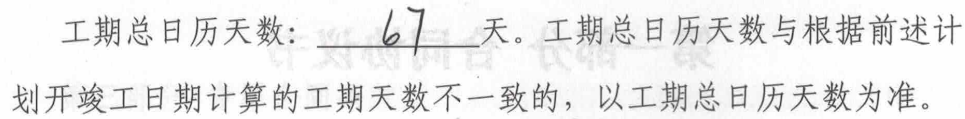 工期总日历天数：67天。工期总日历天数与根据前述计
划开竣工日期计算的工期天数不一致的，以工期总日历天数为准。